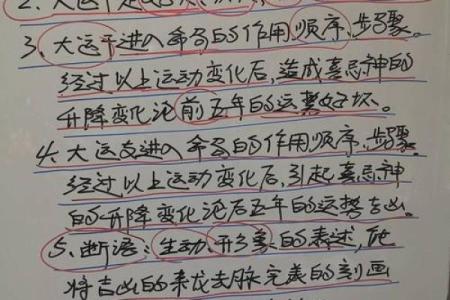 2、大运干
3、大运干进入命局的作用顺序、步骤。
经过以上运动变化后,造成喜忌神的
升降变化论前五年的运势好坏。
4、大运支进入命局的作用顺序、步骤
经过以上运动变化后,引起喜忌神
的升降变化论后五年的运势吉凶。
5、断语:生动、形象的表述,能
将吉凶的来龙去脉完美的刻画